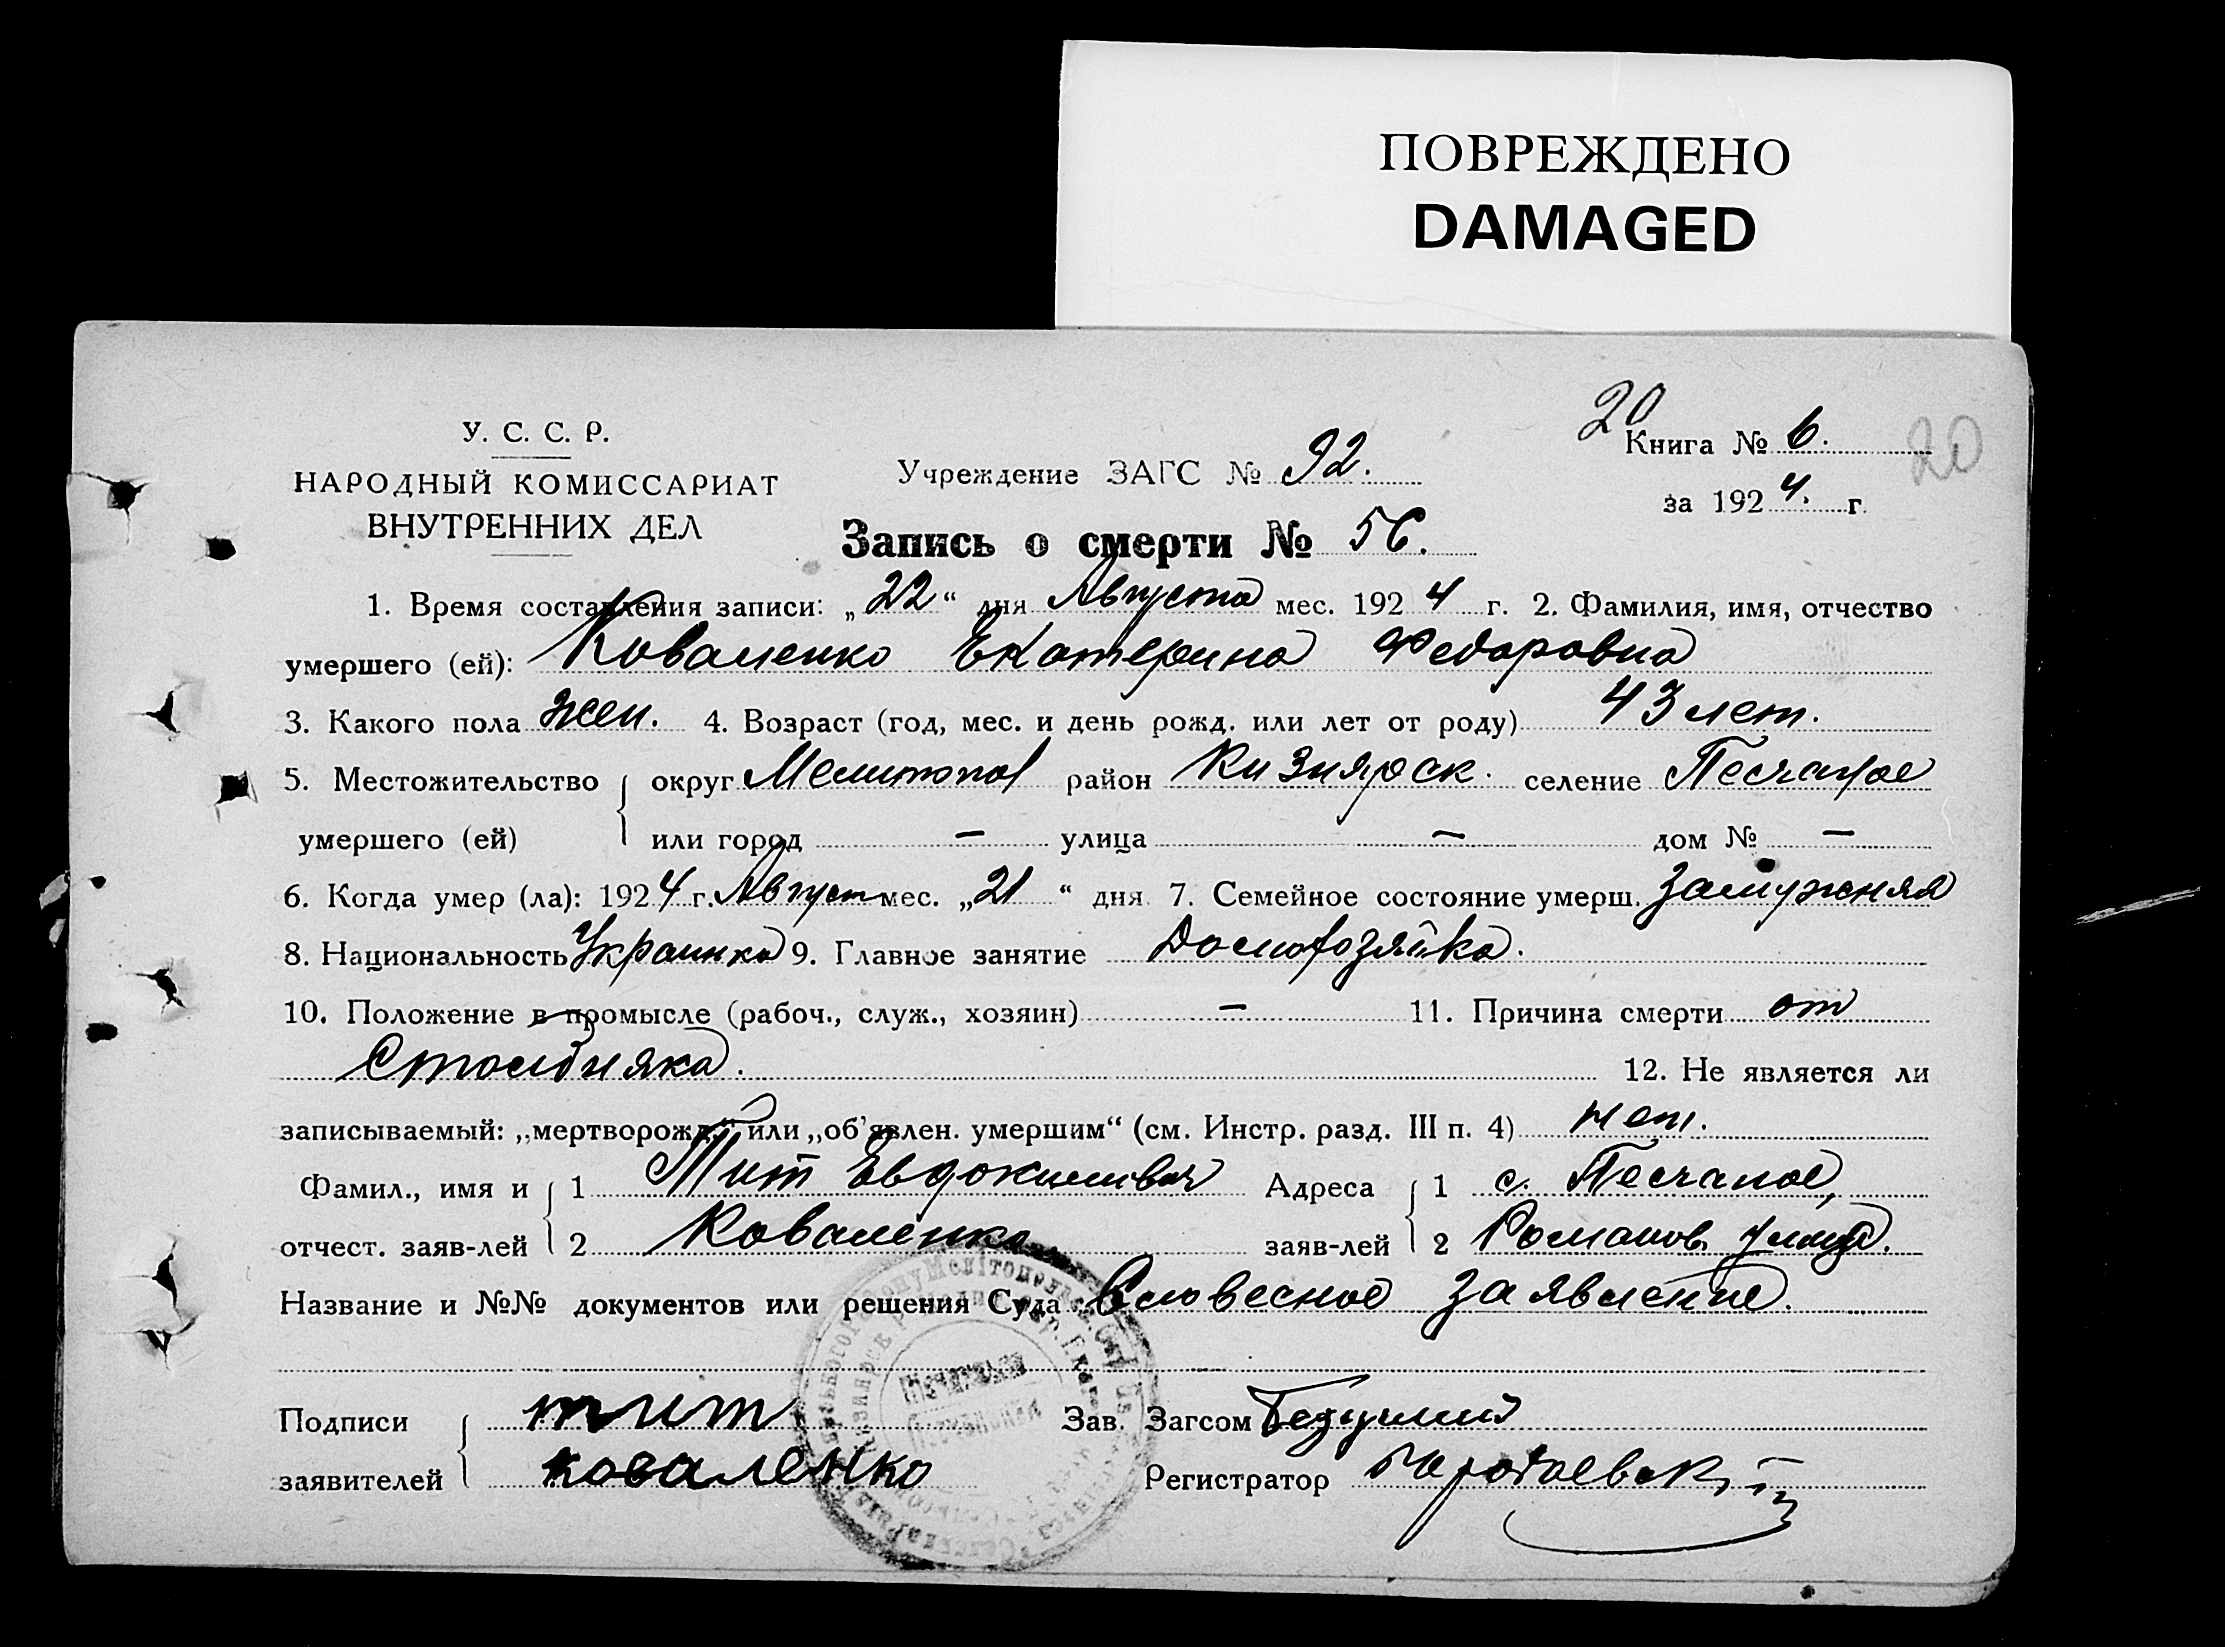 ПОВРЕЖДЕНО
DAMAGED
20
Книга № 6. 20
У. С. С. Р.
Учреждение ЗАГС № 92.
НАРОДНЫЙ КОМИССАРИАТ
за 1924. г.
ВНУТРЕННИХ ДЕЛ
Запись о смерти № 56.
1. Время составления записи: „22“ дня Августа мес. 1924 г. 2. Фамилия, имя, отчество
умершего (ей): Коваленко Екатерина Федоровна
3. Какого пола жен. 4. Возраст (год, мес. и день рожд. или лет от роду) 43 лет.
5. Местожительство округ Мелитопол район Кизиярск. селение Песчаное
умершего (ей) или город — улица — дом № —
6. Когда умер (ла): 1924 г. Август мес. „21“ дня 7. Семейное состояние умерш. Замужняя
8. Национальность Украинка 9. Главное занятие Домохозяйка.
10. Положение в промысле (рабоч., служ., хозяин) — 11. Причина смерти от
Столбняка. 12. Не является ли
записываемый: „мертворожд.“ или „об'явлен. умершим“ (см. Инстр. разд. III п. 4) нет.
Фамил., имя и 1 Тит Евдокимович Адреса 1 с. Песчаное,
отчест. заяв-лей 2 Коваленко заяв-лей 2 Романов. улица.
Название и №№ документов или решения Суда Словесное заявление.
Подписи тит Зав. Загсом
заявителей коваленко Регистратор